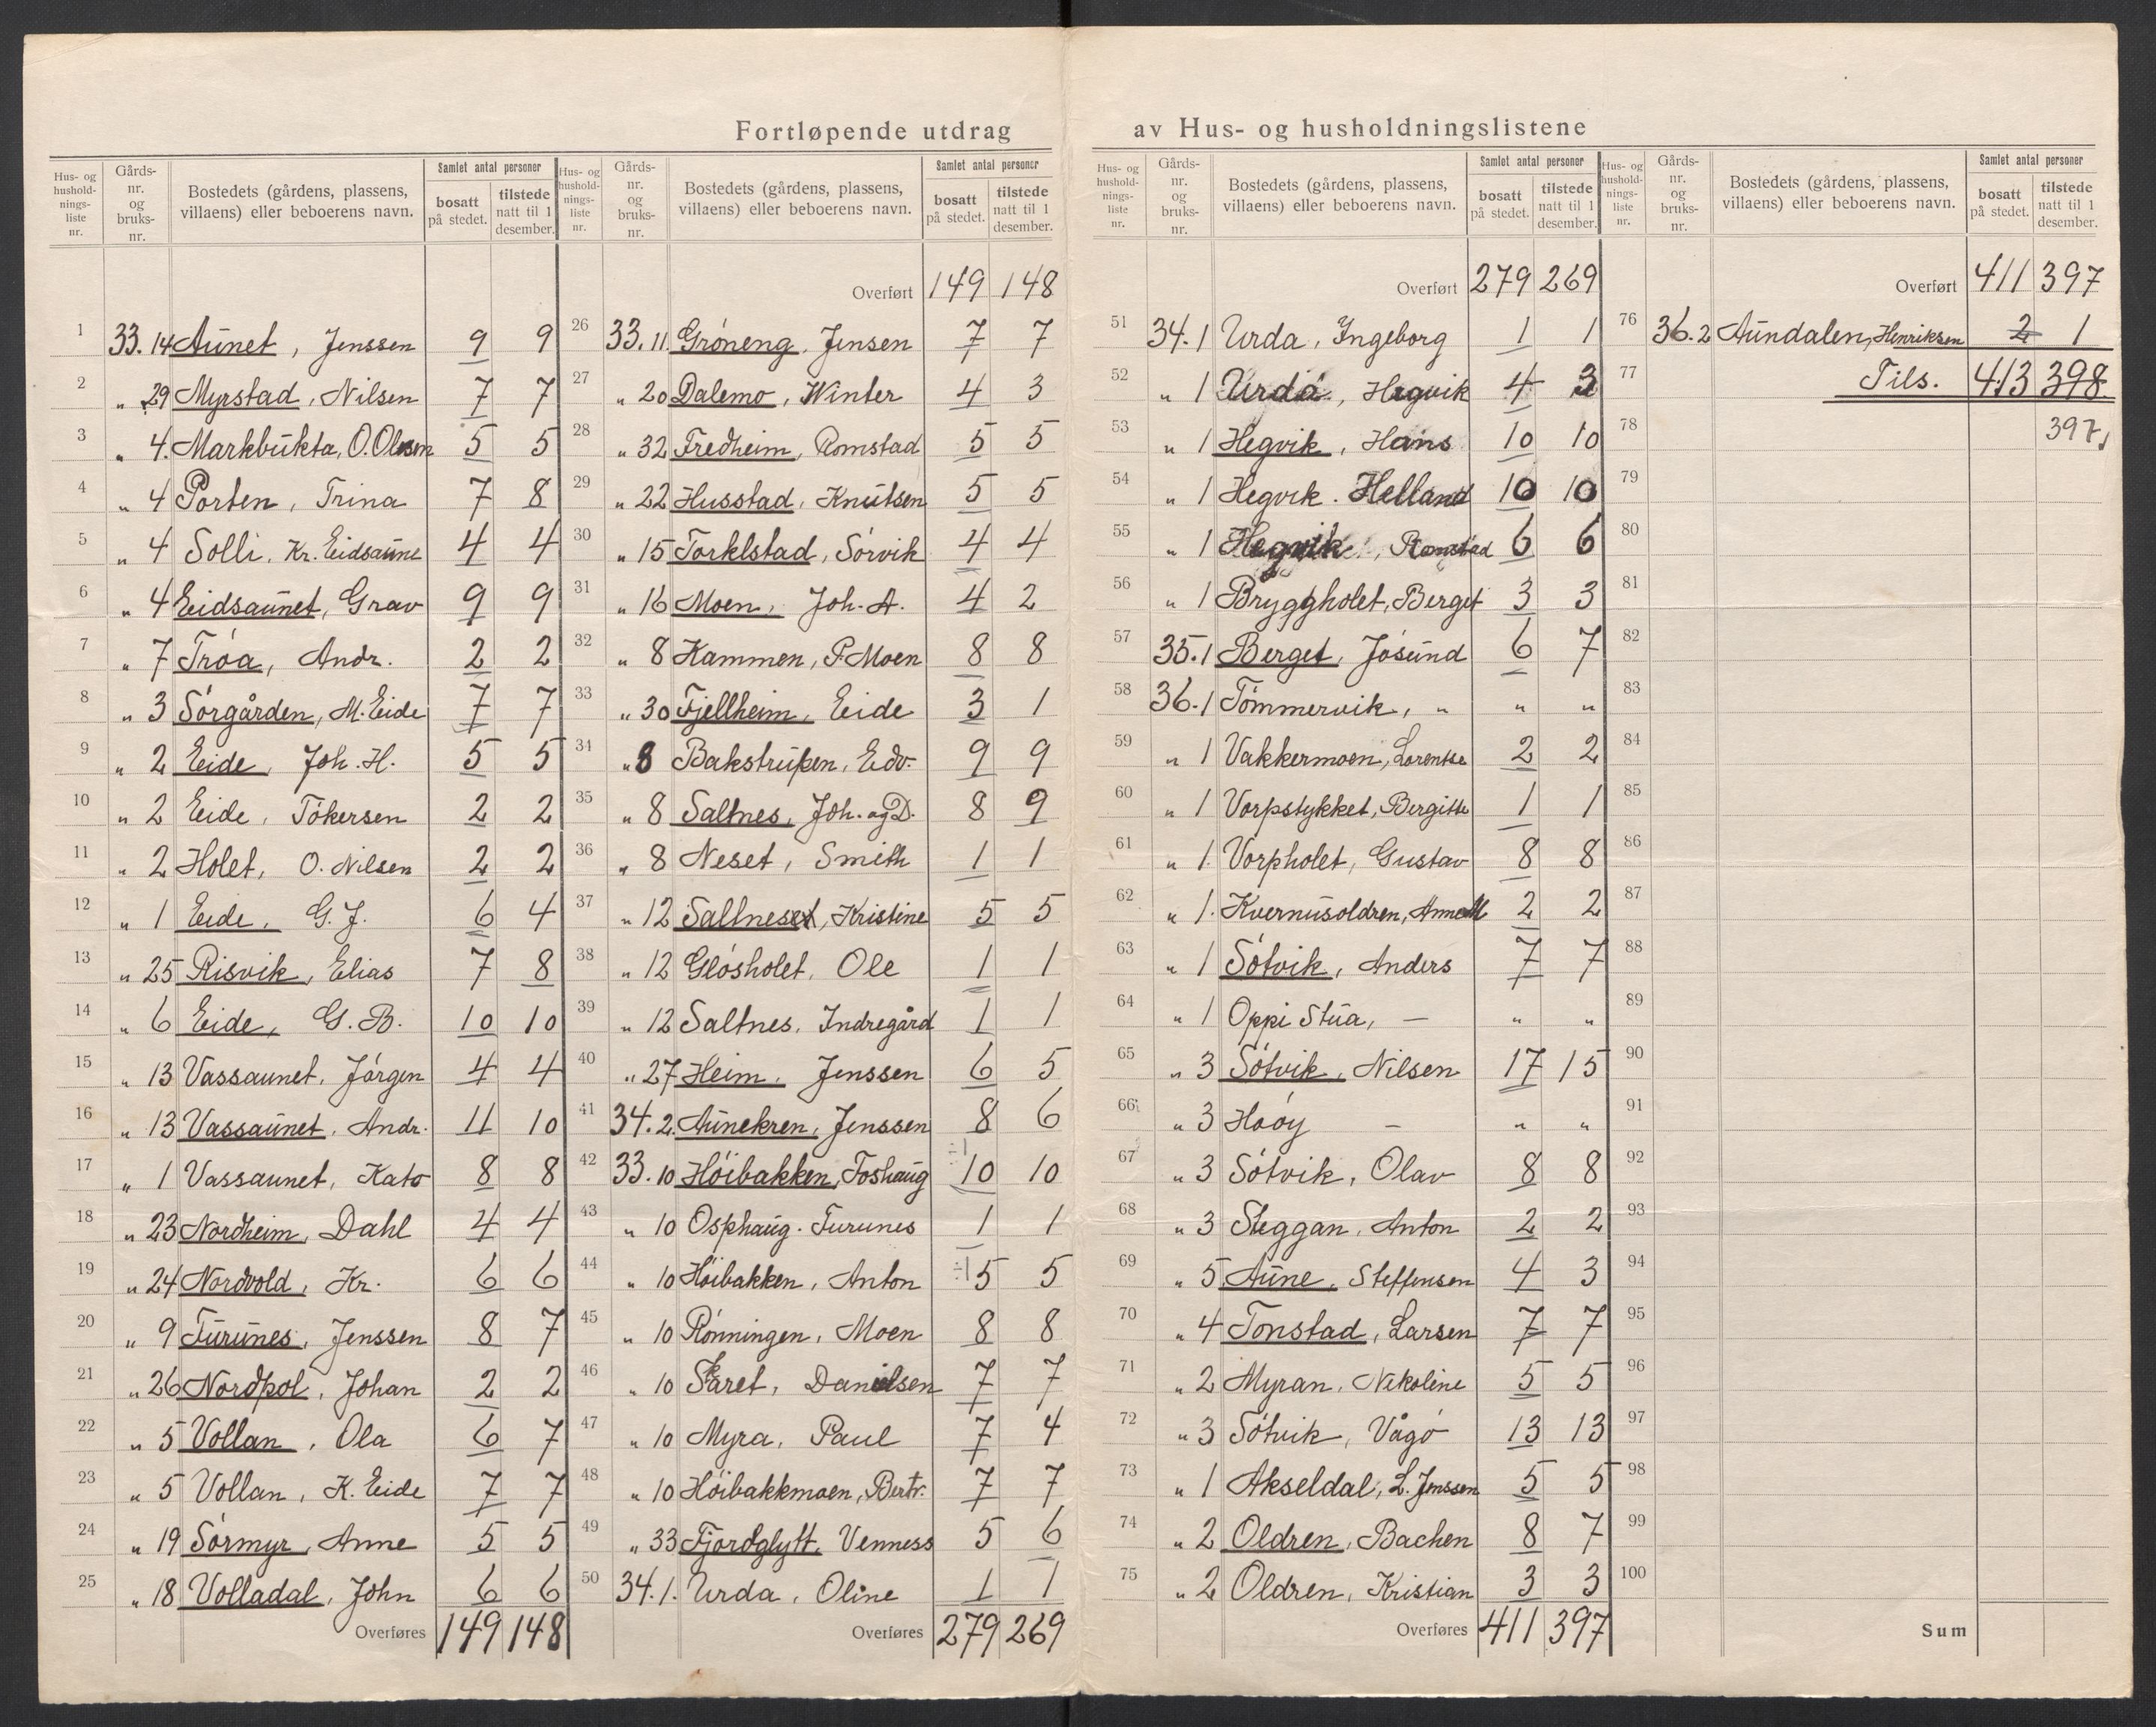 Fortløpende utdrag av Hus- og husholdningslistene
Hus- og hushold- nings- liste nr.
Gårds- nr. og bruks- nr.
Bostedets (gårdens, plassens, villaens) eller beboerens navn.
Samlet antal personer
bosatt på stedet.
tilstede natt til 1 desember.
1 33. 14 Aunet, Jenssen 9 9
2 „ 29 Myrstad, Nilsen 7 7
3 „ 4. Markbukta, O. Olsen 5 5
4 „ 4 Porten, Trina 7 8
5 „ 4 Solli, Kr. Eidsaune 4 4
6 „ 4 Eidsaunet, Grav 9 9
7 „ 7 Tróa, Andr. 2 2
8 „ 3 Sórgården, M. Eide 7 7
9 „ 2 Eide, Joh. H. 5 5
10 „ 2 Eide, Tókersen 2 2
11 „ 2 Holet, O. Nilsen 2 2
12 „ 1 Eide, G. J. 6 4
13 „ 25 Risvik, Elias 7 8
14 „ 6 Eide, G. B. 10 10
15 „ 13 Vassaunet, Jórgen 4 4
16 „ 13 Vassaunet, Andr. 11 10
17 „ 1 Vassaunet, Kato 8 8
18 „ 23 Nordheim, Dahl 4 4
19 „ 24 Nordvold, Kr. 6 6
20 „ 9 Furunes, Jenssen 8 7
21 „ 26 Nordpol, Johan 2 2
22 „ 5 Vollan, Ola 6 7
23 „ 5 Vollan, K. Eide 7 7
24 „ 19 Sórmyr, Anne 5 5
25 „ 18 Volladal, John 6 6
Overføres 149 148
Hus- og hushold- nings- liste nr.
Gårds- nr. og bruks- nr.
Bostedets (gårdens, plassens, villaens) eller beboerens navn.
Samlet antal personer
bosatt på stedet.
tilstede natt til 1 desember.
Overført 149 148
26 33. 11. Gróneng, Jensen 7 7
27 „ 20 Dalemo, Winter 4 3
28 „ 32 Fredheim, Romstad 5 5
29 „ 22 Husstad, Knutsen 5 5
30 „ 15 Torklstad, Sórvik 4 4
31 „ 16 Moen, Joh. A. 4 2
32 „ 8 Kammen, P. Moen 8 8
33 „ 30 Fjellheim, Eide 3 1
34 „ 8 Bakstrupen, Edv. 9 9
35 „ 8 Saltnes, Joh. og D. 8 9
36 „ 8 Neset, Smith 1 1
37 „ 12 Saltneset, Kristine 5 5
38 „ 12 Glósholet, Ole 1 1
39 „ 12 Saltnes, Indregård 1 1
40 „ 27 Heim, Jenssen 6 5
41 34. 2. Aunekren, Jenssen 8 6
42 33. 10 Hóibakken, Foshaug ÷1 10 10
43 „ 10 Osphaug. Furunes 1 1
44 „ 10 Hóibakken, Anton ÷1 5 5
45 „ 10 Rónningen, Moen 8 8
46 „ 10 Skaret, Danielsen 7 7
47 „ 10 Myra, Paul 7 4
48 „ 10 Hóibakkmoen, Bertr. 7 7
49 „ 33 Fjordglytt. Venness 5 6
50 34. 1. Urda, Oline 1 1
Overføres 279 269
Hus- og hushold- nings- liste nr.
Gårds- nr. og bruks- nr.
Bostedets (gårdens, plassens, villaens) eller beboerens navn.
Samlet antal personer
bosatt på stedet.
tilstede natt til 1 desember.
Overført 279 269
51 34. 1 Urda, Ingeborg 1 1
52 „ 1 Urda, Hegvik 4 3
53 „ 1 Hegvik, Hans 10 10
54 „ 1 Hegvik. Helland 10 10
55 „ 1 Hegvik, Romstad 6 6
56 „ 1 Bryggholet, Berget 3 3
57 35. 1 Berget, Jósund 6 7
58 36. 1 Tómmervik, „ „ „
59 „ 1 Vakkermoen, Lorentse 2 2
60 „ 1 Vorpstykket, Bergitte 1 1
61 „ 1. Vorpholet, Gustav 8 8
62 „ 1. Kvernusoldren, Anne M 2 2
63 „ 1 Sótvik, Anders 7 7
64 „ 1 Oppi Stua, — „ „
65 „ 3 Sótvik, Nilsen 17 15
66 „ 3 Háóy — „ „
67 „ 3 Sótvik, Olav 8 8
68 „ 3 Steggan, Anton 2 2
69 „ 5 Aune, Steffensen 4 3
70 „ 4 Tonstad, Larsen 7 7
71 „ 2 Myran, Nikoline 5 5
72 „ 3 Sótvik, Vågó 13 13
73 „ 1 Akseldal, L. Jenssen 5 5
74 „ 2 Oldren, Bachen 8 7
75 „ 2 Oldren, Kristian 3 3
Overføres 411 397
Hus- og hushold- nings- liste nr.
Gårds- nr. og bruks- nr.
Bostedets (gårdens, plassens, villaens) eller beboerens navn.
Samlet antal personer
bosatt på stedet.
tilstede natt til 1 desember.
Overført 411 397
76 36. 2 Aundalen, Henriksen 2 1
77 Tils. 413 398.
78 397
79
80
81
82
83
84
85
86
87
88
89
90
91
92
93
94
95
96
97
98
99
100
Sum